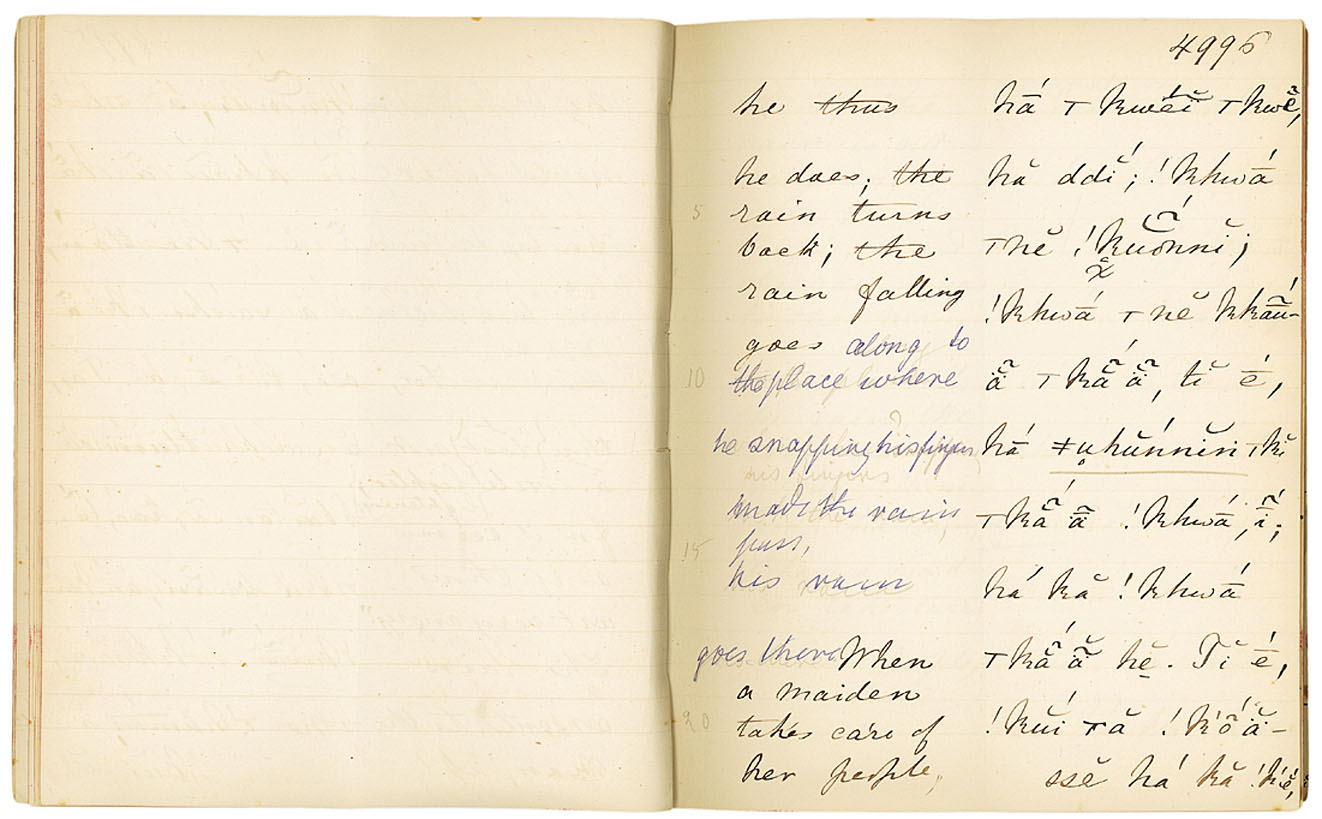 4996
he ~~thus~~ hā́ ⊤ kwĕĭ ⊤ kwĕ̃,
he does; ~~the~~ hă ddĭ́; !khwā́
5 rain turns
back; ~~the~~ ⊤nĕ !kŭō̃nnĭ;
rain falling !khwā́ ⊤nĕ kkā̃ū-
goes along to
10 the place where ā̃̈ ⊤kā̃́ ā̃̈, tĭ ḗ,
he snapping his fingers hā́ ≠u̥hŭ́nnĭ́ñ ⊤kĭ
his fingers
made the rain ⊤kā̃́ ā̃ !khwā́, ī̃́;
15 pass,
his rain há kă !khwā́
goes there When ⊤kā̃́ ā̃̈ hĕ̱. Tĭ ḗ,
a maiden
20 takes care of !kŭí ⊤ă !kṓä̆-
her people, ssĕ há kă !kĕ́,